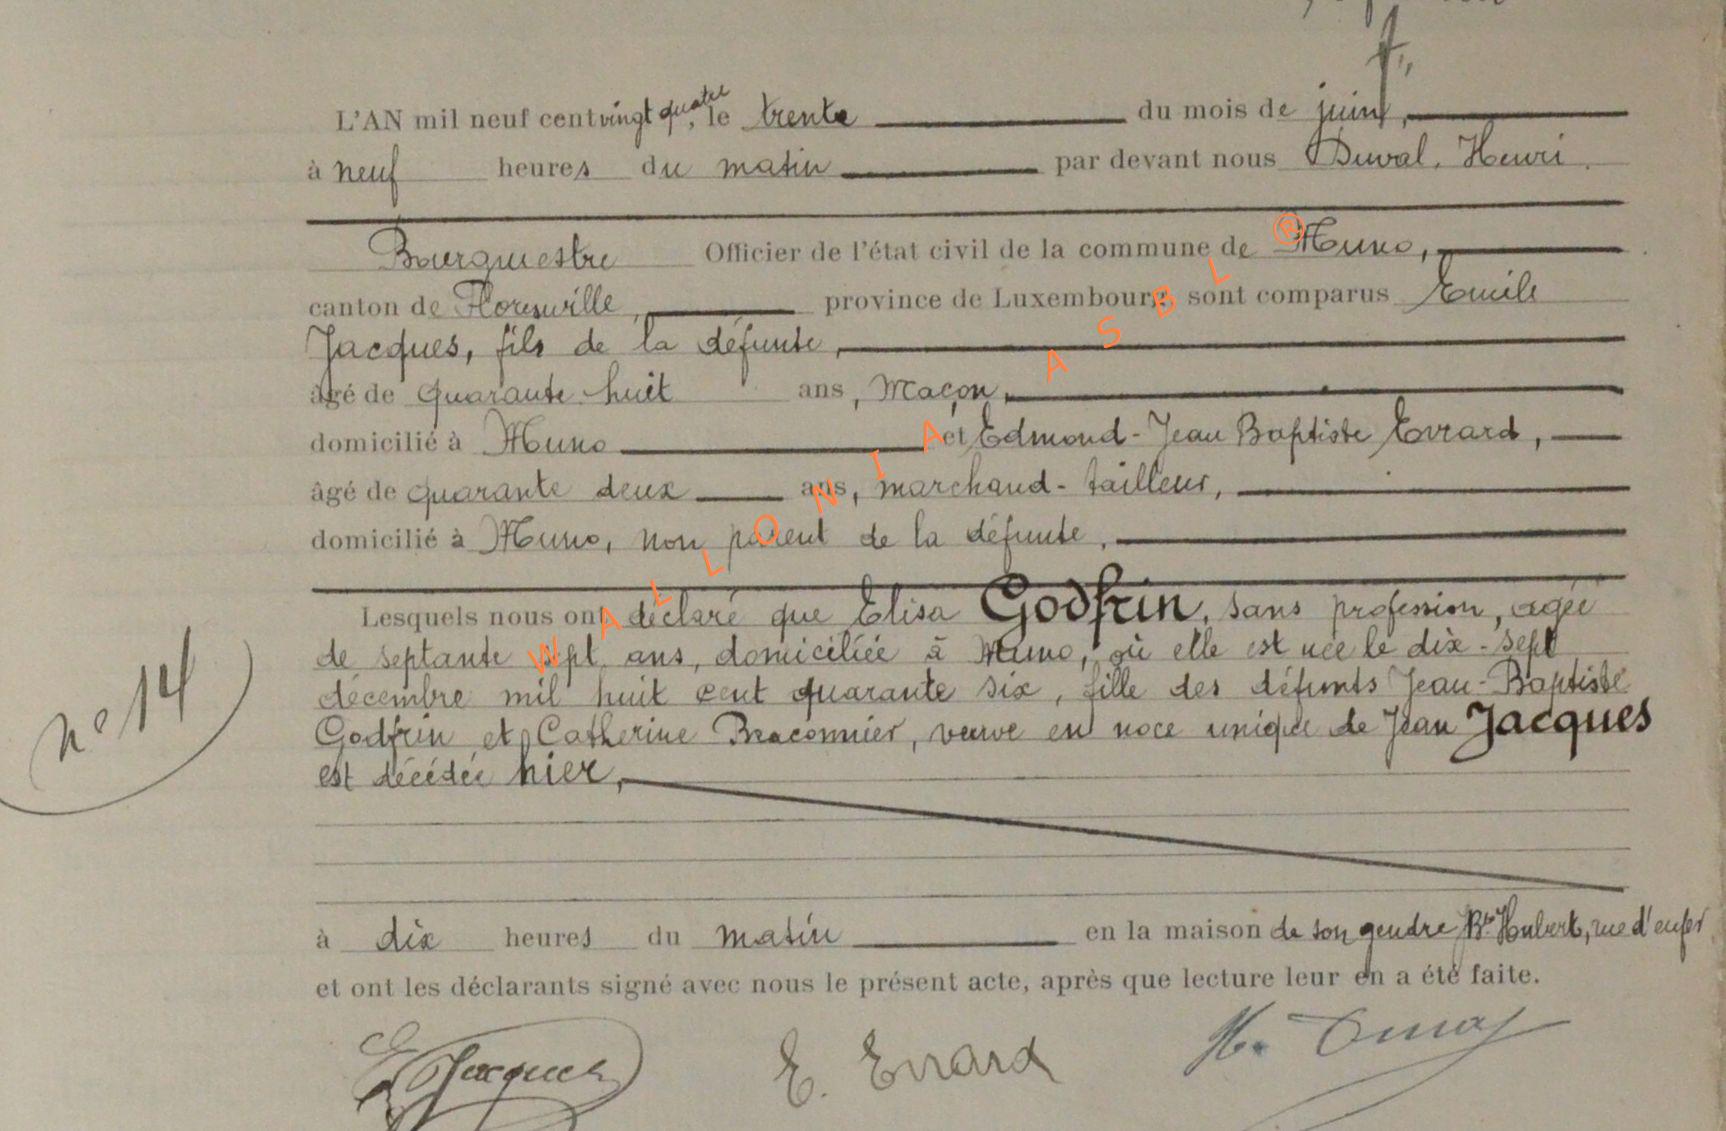 L'AN mil neuf cent vingt quatre, le trente du mois de juin,
à neuf heures du matin par devant nous Duval, Henri.
Bourgmestre Officier de l'état civil de la commune de Muno,
canton de Florenville, province de Luxembourg sont comparus Emile
Jacques, fils de la défunte,
âgé de quarante huit ans, Maçon,
domicilié à Muno et Edmond-Jean Baptiste Evrard,
âgé de quarante deux ans, marchand-tailleur,
domicilié à Muno, non parent de la défunte,
Lesquels nous ont déclaré que Elisa Godfrin, sans profession, agée
de septante sept ans, domiciliée à Muno, où elle est née le dix-sept
décembre mil huit cent quarante six, fille des défunts Jean-Baptiste
n° 14
Godfrin et Catherine Braconnier, veuve en noce unique de Jean Jacques
est décédée hier,
à dix heures du matin en la maison de son gendre Bte Hubert, rue d'enfer
et ont les déclarants signé avec nous le présent acte, après que lecture leur en a été faite.
E Jacques E. Evrard H. Duval
WALLONIA ASBL ®